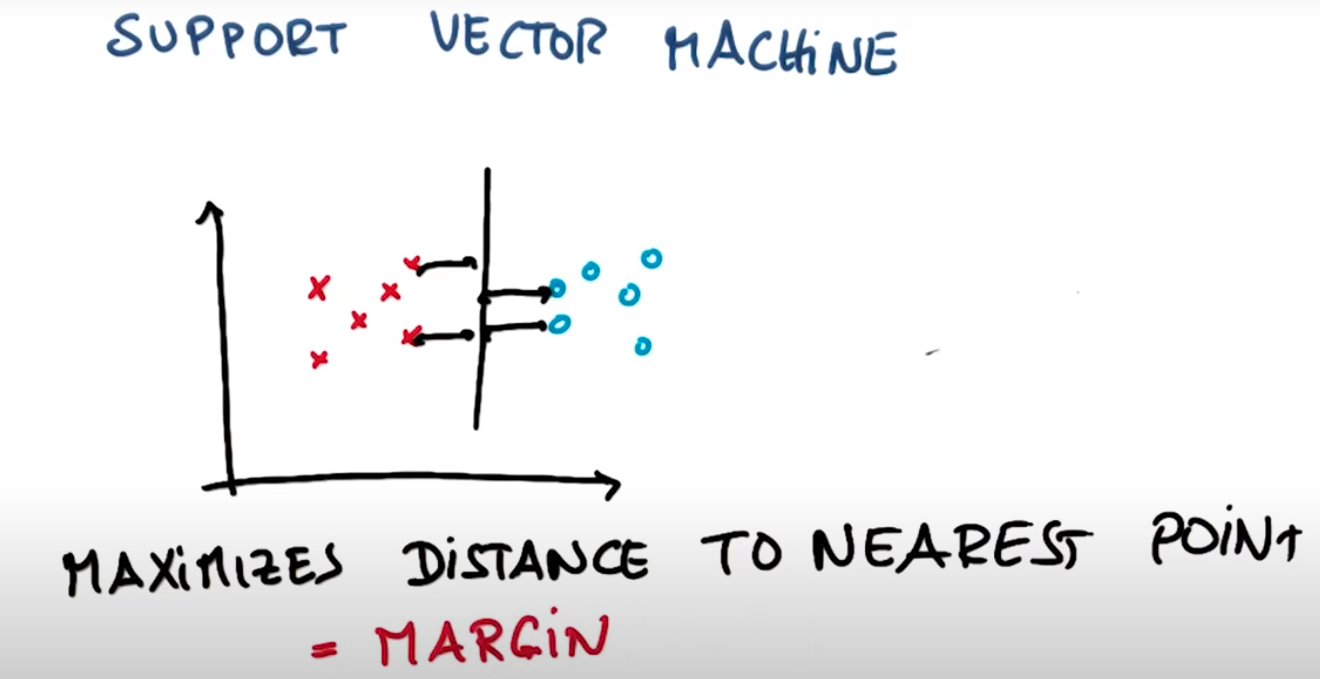 SUPPORT VECTOR MACHINE
MAXiMIZES DiSTANCE TO NEAREST POiNT
= MARGiN